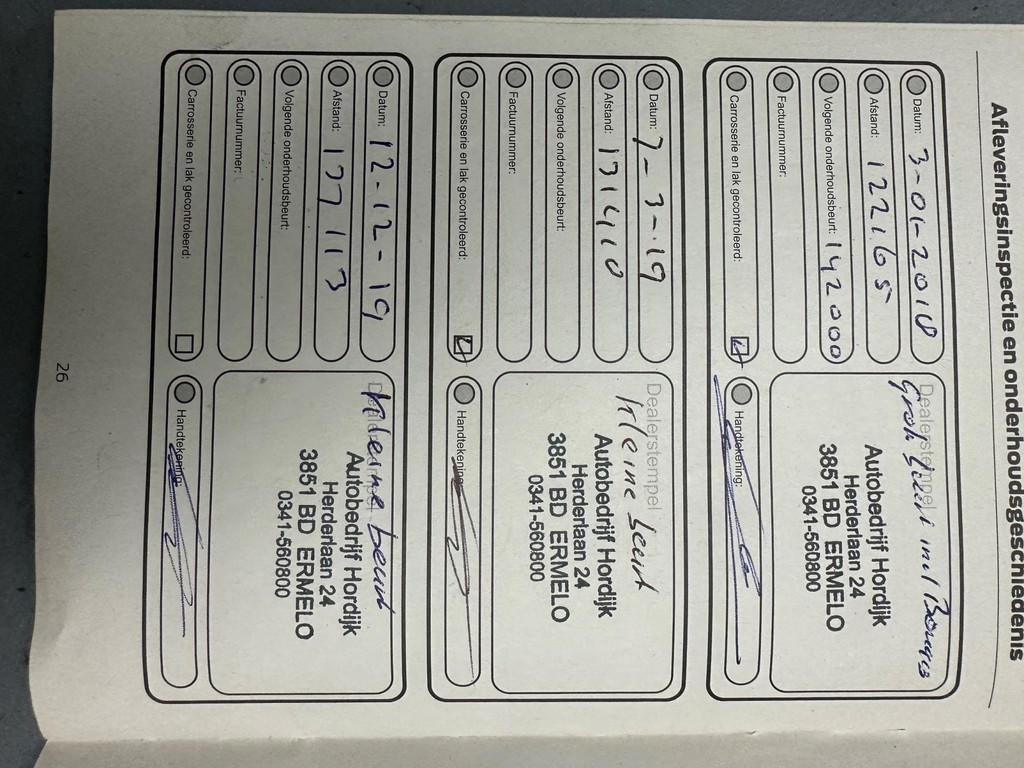 Afleveringsinspectie en onderhoudsgeschiedenis
Datum: 3-01-2018
Afstand: 122165
Volgende onderhoudsbeurt: 142000
Factuurnummer:
Carrosserie en lak gecontroleerd:
Dealerstempel
Autobedrijf Hordijk
Herderlaan 24
3851 BD ERMELO
0341-560800
Handtekening:
Datum: 7-3-19
Afstand: 131410
Volgende onderhoudsbeurt:
Factuurnummer:
Carrosserie en lak gecontroleerd:
Dealerstempel
Kleine beurt
Autobedrijf Hordijk
Herderlaan 24
3851 BD ERMELO
0341-560800
Handtekening:
Datum: 12-12-19
Afstand: 137113
Volgende onderhoudsbeurt:
Factuurnummer:
Carrosserie en lak gecontroleerd:
Kleine beurt
Autobedrijf Hordijk
Herderlaan 24
3851 BD ERMELO
0341-560800
Handtekening:
26